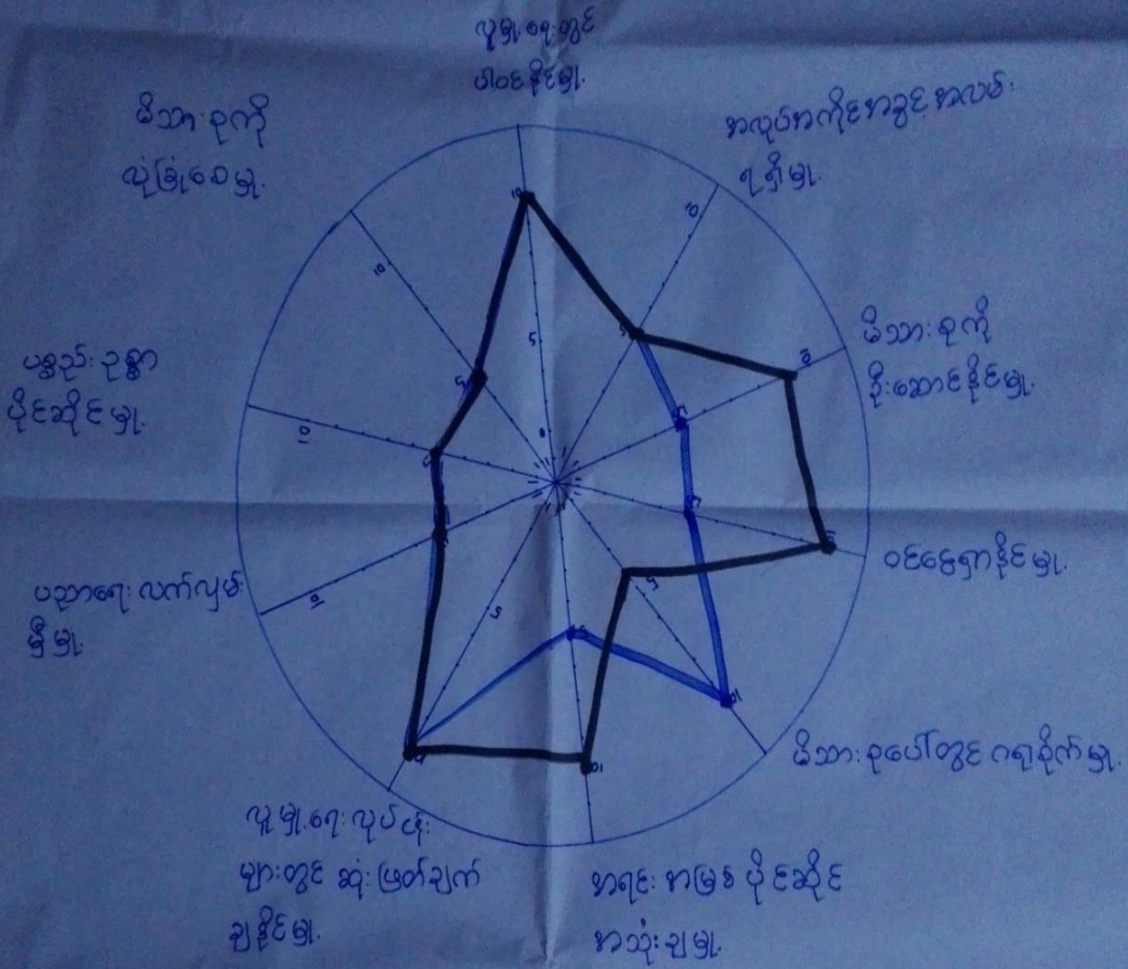 လူမှု့ရေးတွင်
ပါဝင်နိုင်မှု့
အလုပ်အကိုင်အခွင့်အလမ်း
ရရှိမှု့
မိသားစုကို
ဦးဆောင်နိုင်မှု့
ဝင်ငွေရှာနိုင်မှု့
မိသားစုပေါ်တွင် ဂရုစိုက်မှု့
အရင်းအမြစ် ပိုင်ဆိုင်
အသုံးချမှု့
လူမှု့ရေးလုပ်ငန်း
များတွင် ဆုံးဖြတ်ချက်
ချနိုင်မှု့
ပညာရေး လက်လှမ်း
မှီမှု့
ပစ္စည်းဥစ္စာ
ပိုင်ဆိုင်မှု့
မိသားစုကို
လုံခြုံစေမှု့
10
5
0
10
5
10
5
10
5
10
5
10
5
10
5
10
10
5
10